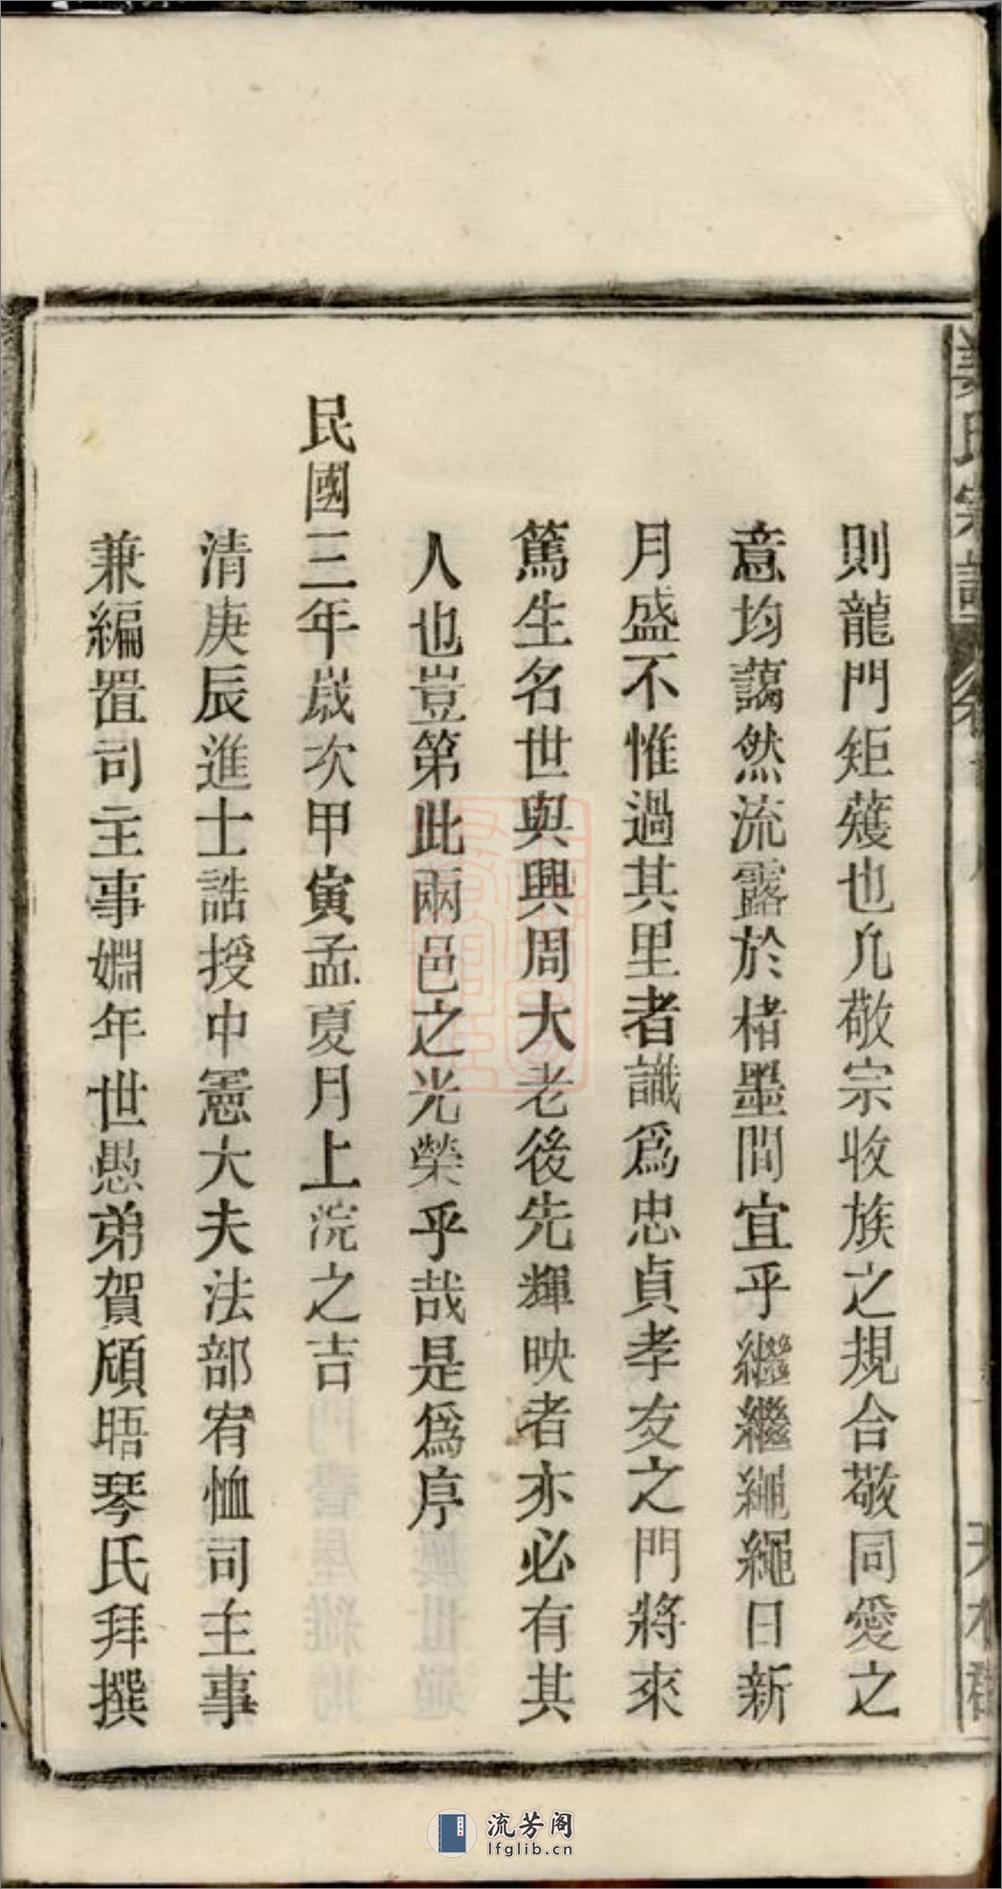 則龍門矩蒦也凢敬宗收族之規合敬同愛之
意均藹然流露於楮墨間宜乎繼繼繩繩日新
月盛不惟過其里者識爲忠貞孝友之門將來
篤生名世與興周大老後先輝映者亦必有其
人也豈第此兩邑之光榮乎哉是爲序
民國三年歲次甲寅孟夏月上浣之吉
清庚辰進士誥授中憲大夫法部宥恤司主事
兼編置司主事姻年世愚弟賀頎晤琴氏拜撰
流芳阁
lfglib.cn